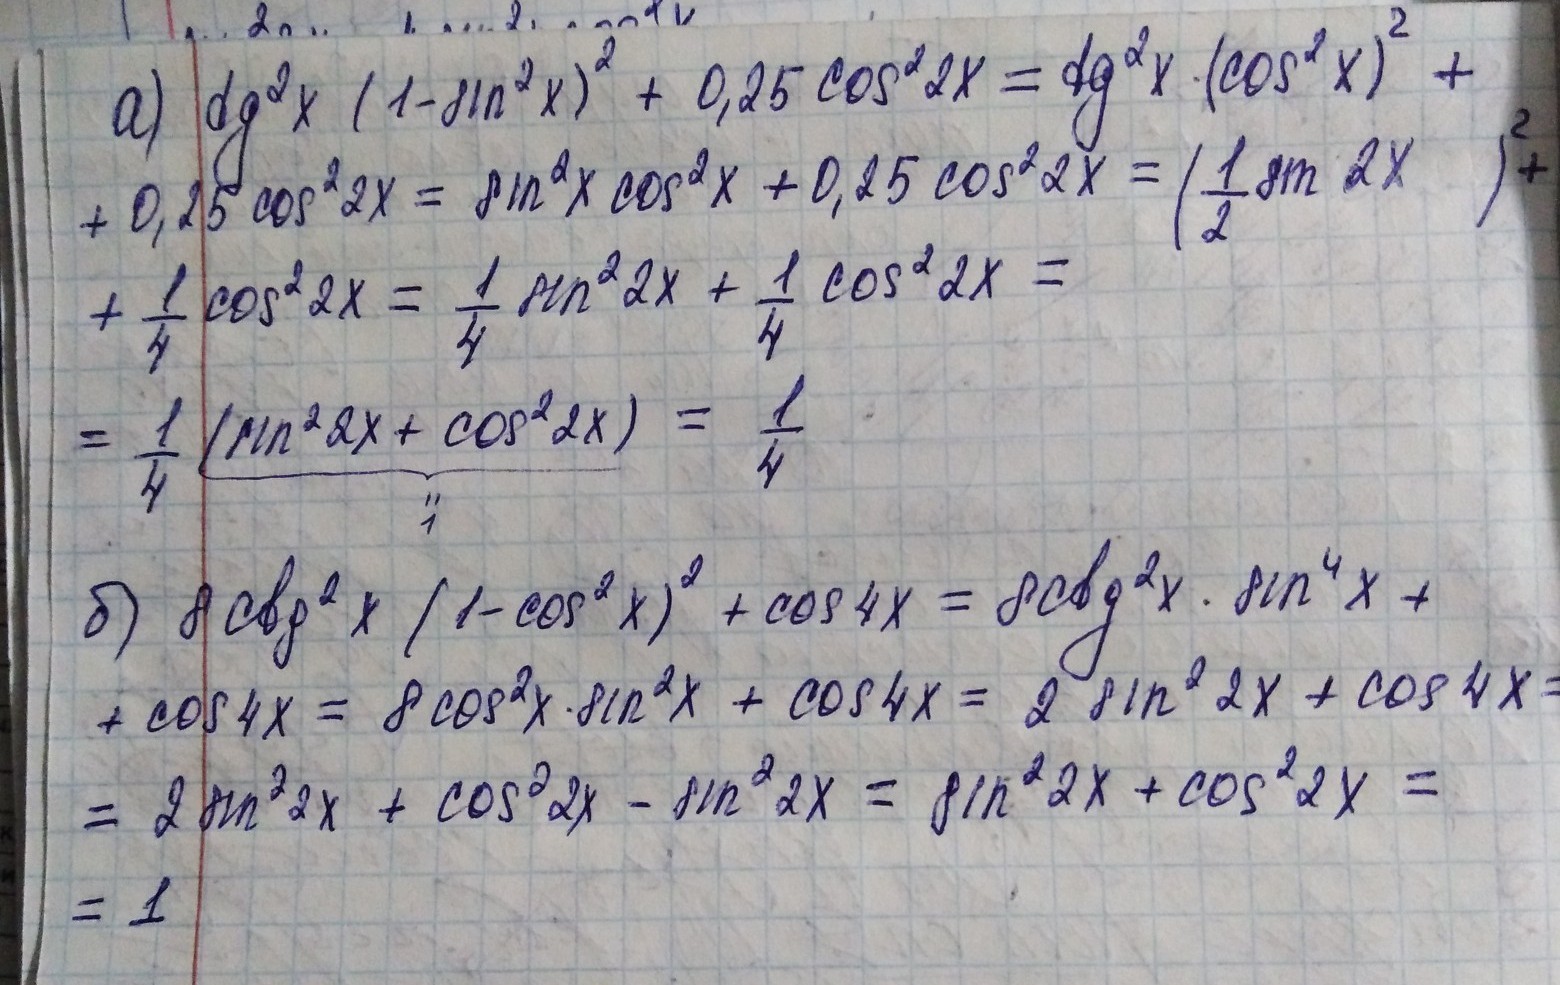 а) tg²x (1-sin²x)² + 0,25 cos²2x = tg²x · (cos²x)² +
+ 0,25 cos²2x = sin²x cos²x + 0,25 cos²2x = (1/2 sin 2x)² +
+ 1/4 cos²2x = 1/4 sin²2x + 1/4 cos²2x =
= 1/4 (sin²2x + cos²2x) = 1/4
"
1
б) 8ctg²x (1-cos²x)² + cos4x = 8ctg²x · sin⁴x +
+ cos4x = 8cos²x·sin²x + cos4x = 2 sin²2x + cos4x =
= 2sin²2x + cos²2x - sin²2x = sin²2x + cos²2x =
= 1